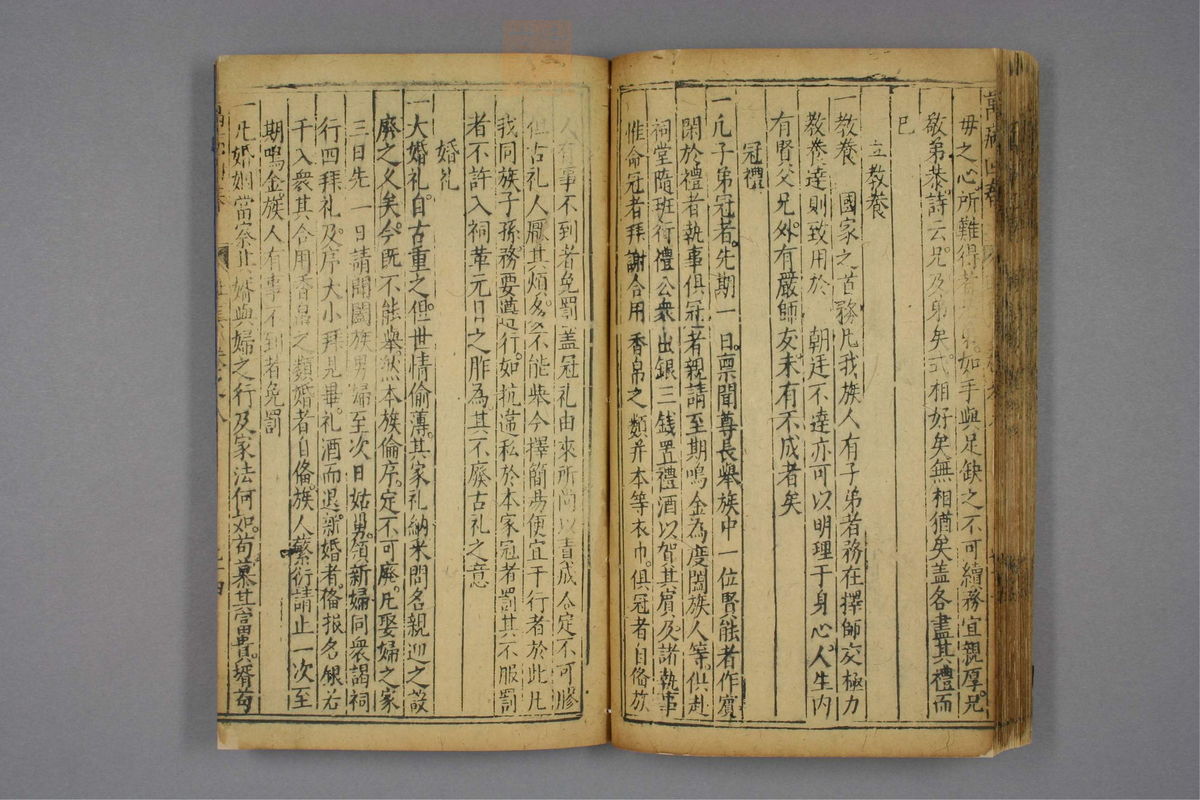 母之心所難得者如手與足缺之不可續務宜親厚兄
敬弟恭詩云兄及弟矣式相好矣無相猶矣蓋各盡其禮而
已
立教養
一教養 國家之首務凡我族人有子弟者務在擇師交極力
教養達則致用於 朝廷不達亦可以明理于身心人生内
有賢父兄外有嚴師友未有不成者矣
冠禮
一凡子弟冠者先期一日禀聞尊長舉族中一位賢能者作賓
閑於禮者執事俱冠者親請至期鳴金為度闔族人等俱赴
祠堂隨班行禮公衆出銀三錢置禮酒以賀其賓及諸執事
惟命冠者拜謝合用香帛之類并本等衣巾俱冠者自俻族
人有事不到者免罰盖冠礼由來所尚以責成人定不可膠
但古礼人厭其煩多不能舉今擇簡易便宜于行者於此凡
我同族子孫務要遵行如抗違私於本家冠者罰其不服罰
者不許入祠革元日之胙為其不廢古礼之意
婚礼
一大婚礼自古重之但世情偷薄其家礼納采問名親迎之
廢之久矣今既不能舉然本族倫序定不可廢凡娶婦之家
三日先一日請闔族男婦至次日姑男領新婦同衆謁祠
行四拜礼及序大小拜見畢礼酒而退新婚者俻報名銀若
干入衆其合用香帛之類婚者自俻族人蕃衍請止一次至
期鳴金族人有事不到者免罰
一凡婚姻當察其婿與婦之行及家法何如苟慕其富貴婿苟